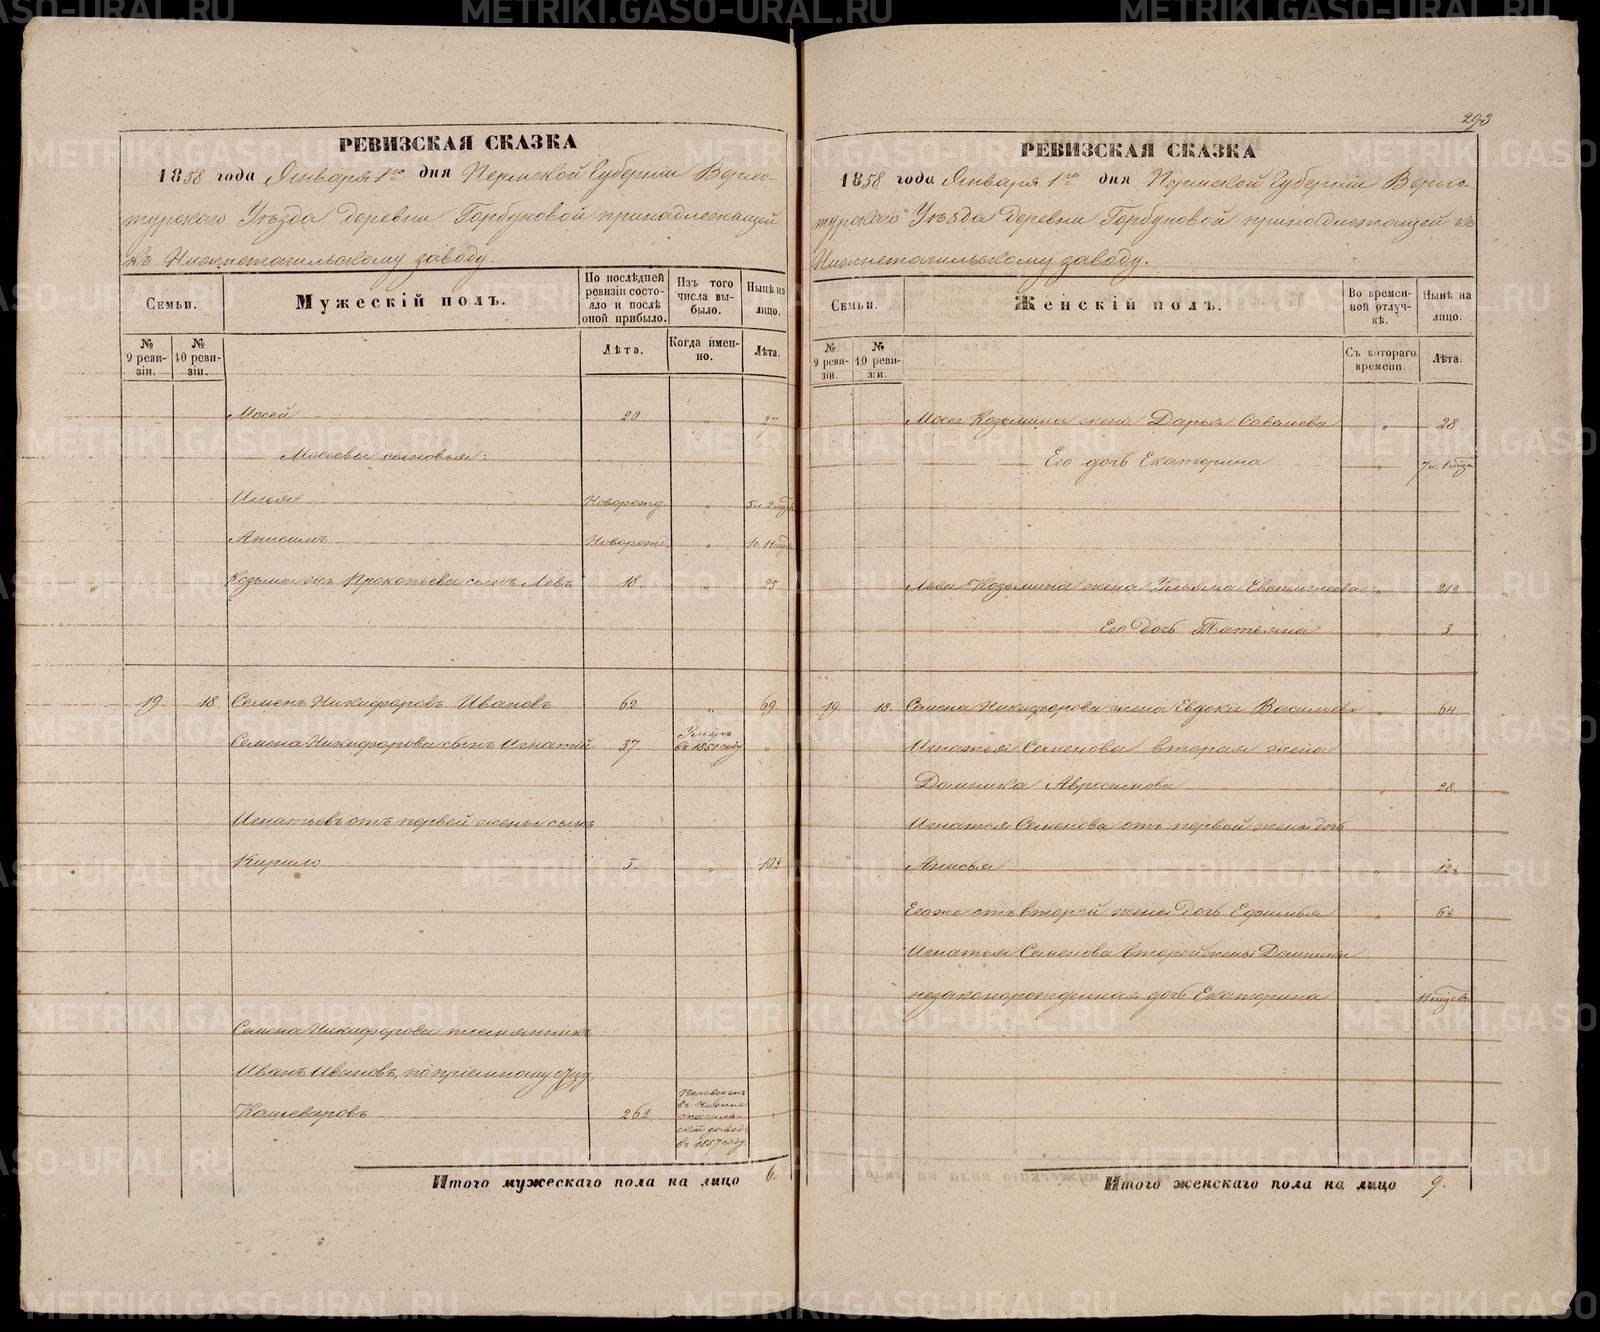 РЕВИЗСКАЯ СКАЗКА
1858 года Января 1го дня Пермской Губернiи Верхо-
турскаго Уѣзда деревни Горбуновой принадлежащей
къ Нижнетагильскому заводу.
Семьи.
Мужескiй полъ.
По послѣдней ревизiи состо-
яло и послѣ
оной прибыло.
Изъ того
числа вы-
было.
Нынѣ на
лицо.
№
9 реви-
зiи.
№
10 реви-
зiи.
Лѣта.
Когда имен-
но.
Лѣта.
Мосей 20 „ 27
Мосеевы сыновья:
Илья Новорожд „ 5 л. 2 мѣс
Анисимъ Новорожд „
Козьмы жъ Прокопьева сынъ Левъ 18 „ 25
19 18 Семенъ Никифоровъ Ивановъ 62 „ 69
Семена Никифорова сынъ Игнатiй 37 Умеръ
въ 1851 году „
Игнатьевъ отъ первой жены сынъ
Кирило 3 „ 10½
Семена Никифорова племянникъ
Иванъ Ивановъ, по прiемному отцу
Кашеваровъ 26½ Переведенъ
въ Нижне
тагиль-
скiй заводъ
въ 1857 году „
Итого мужескаго пола на лицо 6.
293
РЕВИЗСКАЯ СКАЗКА
1858 года Января 1го дня Пермской Губернiи Верхо-
турскаго Уѣзда деревни Горбуновой принадлежащей къ
Нижнетагильскому заводу.
Семьи.
Женскiй полъ.
Во времен-
ной отлуч-
кѣ.
Нынѣ на
лицо.
№
9 реви-
зiи.
№
10 реви-
зiи.
Съ котораго
времени.
Лѣта.
Мосея Козьмина жена Дарья Савельева „ 28
Его дочь Екатерина „ 7 л. 1 мѣс
Льва Козьмина жена Ульяна Евстигнеева „ 21½
Его дочь Татьяна „ 3
19 18 Семена Никифорова жена Евдокiя Васильева „ 64
Игнатья Семенова вторая жена
Домника Абросимова „ 28
Игнатья Семенова отъ первой жены дочь
Анисья „ 12½
Его же отъ второй жены дочь Ефимья „ 6½
Игнатья Семенова второй жены Домники
незаконорожденная дочь Екатерина „
Итого женскаго пола на лицо 9.
METRIKI.GASO-URAL.RU